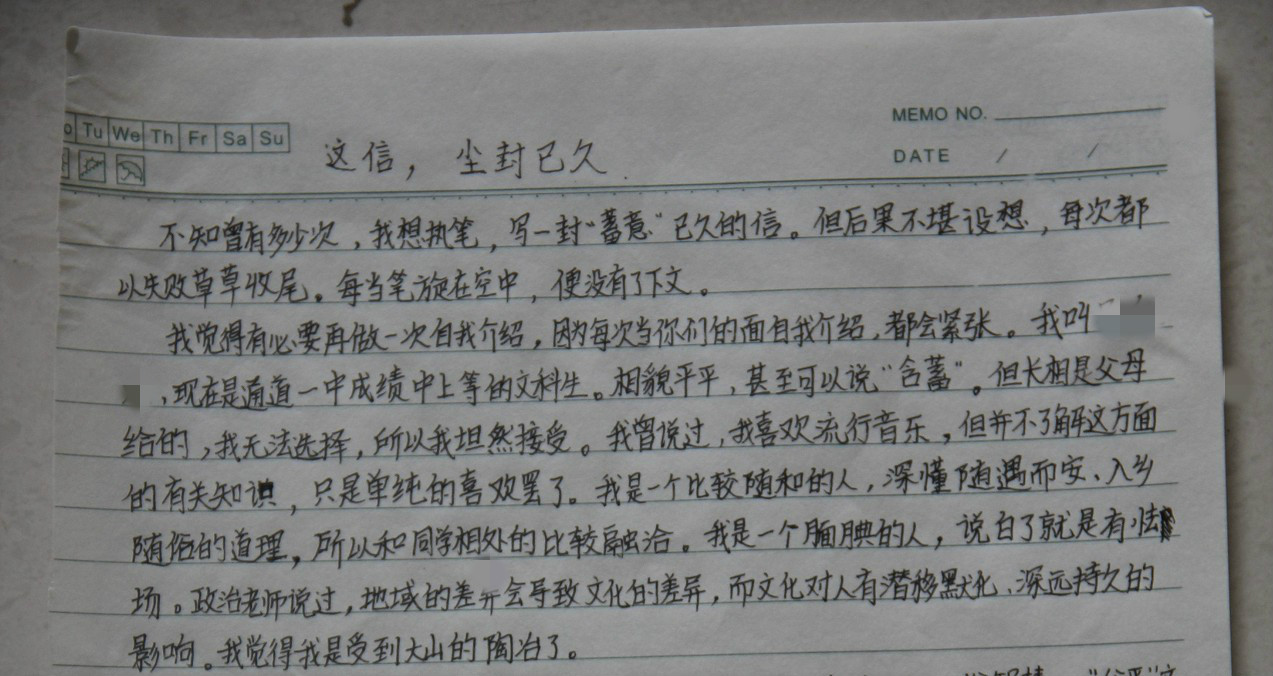 MEMO NO.
Tu We Th Fr Sa Su
DATE / /
这信，尘封已久
不知曾有多少次，我想执笔，写一封“蓄意”已久的信。但后果不堪设想，每次都
以失败草草收尾。每当笔旋在空中，便没有了下文。
我觉得有必要再做一次自我介绍，因为每次当你们的面自我介绍，都会紧张。我叫
，现在是通道一中成绩中上等的文科生。相貌平平，甚至可以说“含蓄”。但长相是父母
给的，我无法选择，所以我坦然接受。我曾说过，我喜欢流行音乐，但并不了解这方面
的有关知识，只是单纯的喜欢罢了。我是一个比较随和的人，深懂随遇而安、入乡
随俗的道理，所以和同学相处的比较融洽。我是一个腼腆的人，说白了就是有怯
场。政治老师说过，地域的差异会导致文化的差异，而文化对人有潜移默化、深远持久的
影响。我觉得我是受到大山的陶冶了。